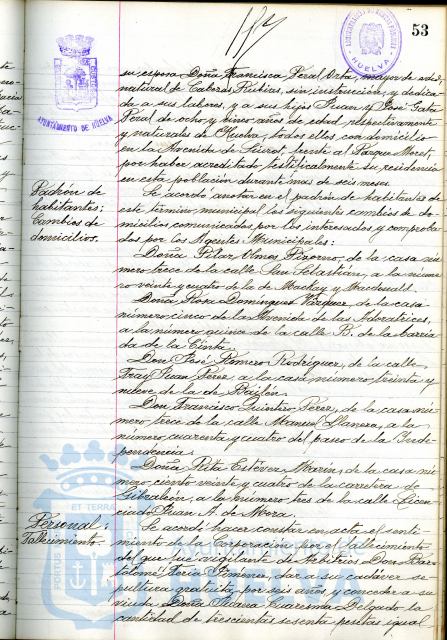 53
AYUNTAMIENTO DE HUELVA
HUELVA
su esposa Doña Francisca Peral Orta, mayor de edad,
natural de Cabezas Rubias, sin instrucción, y dedica-
da a sus labores, y a sus hijos Juan y José
Peral de ocho y cinco años de edad, respectivamente
y naturales de Huelva, todos ellos con domicilio
en la Avenida de frente al Parque Moret,
por haber acreditado testificalmente su residencia
en esta población durante más de seis meses.
Padrón de
habitantes:
Cambios de
domicilios.
Se acordó anotar en el padrón de habitantes de
este término municipal los siguientes cambios de do-
micilios comunicados por los interesados y comproba-
dos por los Agentes Municipales:
Doña Pilar Olmos Pizorno, de la casa nú-
mero trece de la calle San Sebastián, a la núme-
ro veinte y cuatro de la de Mackay y Macdonald.
Doña Rosa Domínguez Vázquez, de la casa
número cinco de la Avenida de las Adoratrices,
a la número quince de la calle B. de la barria-
da de la Cinta.
Don José Romero Rodríguez, de la calle
Fray Juan Pérez a la casa número treinta y
nueve de la de Bailén.
Don Francisco Quintero Pérez, de la casa nú-
mero trece de la calle Manuel Llanera, a la
número cuarenta y cuatro del paseo de la Inde-
pendencia.
Doña Rita Estévez Marín, de la casa nú-
mero ciento veinte y cuatro de la carretera de
Gibraleón, a la número tres de la calle Licen-
ciado Juan A. de Mora.
Personal:
Fallecimiento.
Se acordó hacer constar en acta el senti-
miento de la Corporación por el fallecimiento
del que fue vigilante de Arbitrios Don Bar-
tolomé Feria Jiménez, dar a su cadáver se-
pultura gratuita por seis años y conceder a su
viuda Doña Cuaresma Delgado la
cantidad de trescientas sesenta pesetas igual